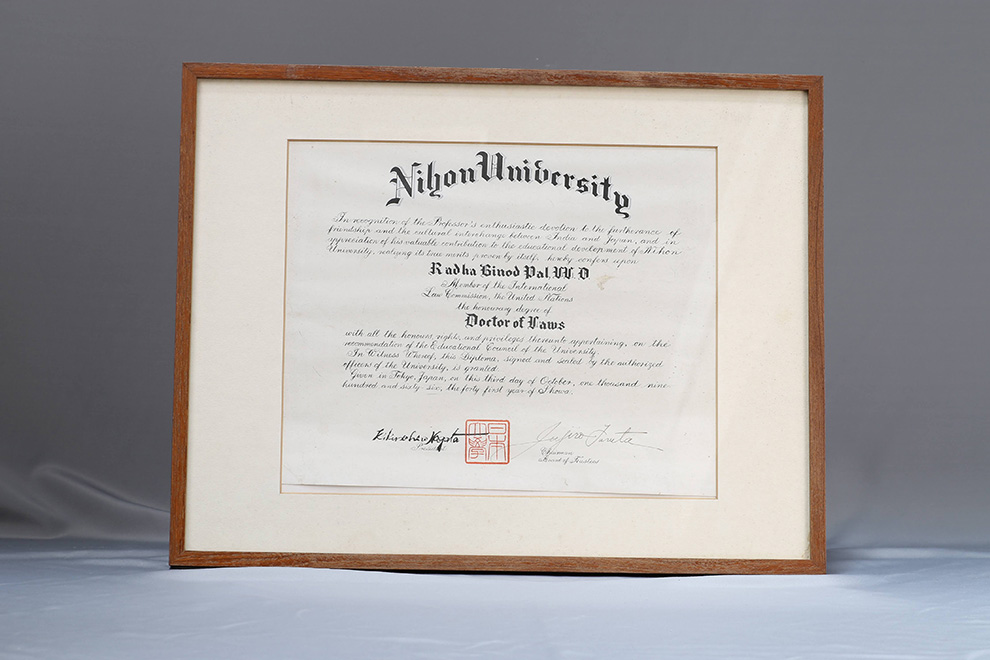 Nihon University
In recognition of the Professor's enthusiastic devotion to the furtherance of
friendship and the cultural interchange between India and Japan, and in
appreciation of his valuable contribution to the educational development of Nihon
University, realizing its true merits proven by itself, hereby confers upon
Radha Binod Pal,
a Member of the International
Law Commission, the United Nations
the honourary degree of
Doctor of Laws
with all the honours, rights, and privileges thereunto appertaining, on the
recommendation of the Educational Council of the University.
In Witness Whereof, this Diploma, signed and sealed by the authorized
officers of the University, is granted.
Given in Tokyo, Japan, on this third day of October, one thousand nine
hundred and sixty six, the forty first year of Showa.
日本
大學
President
Chairman
Board of Trustees